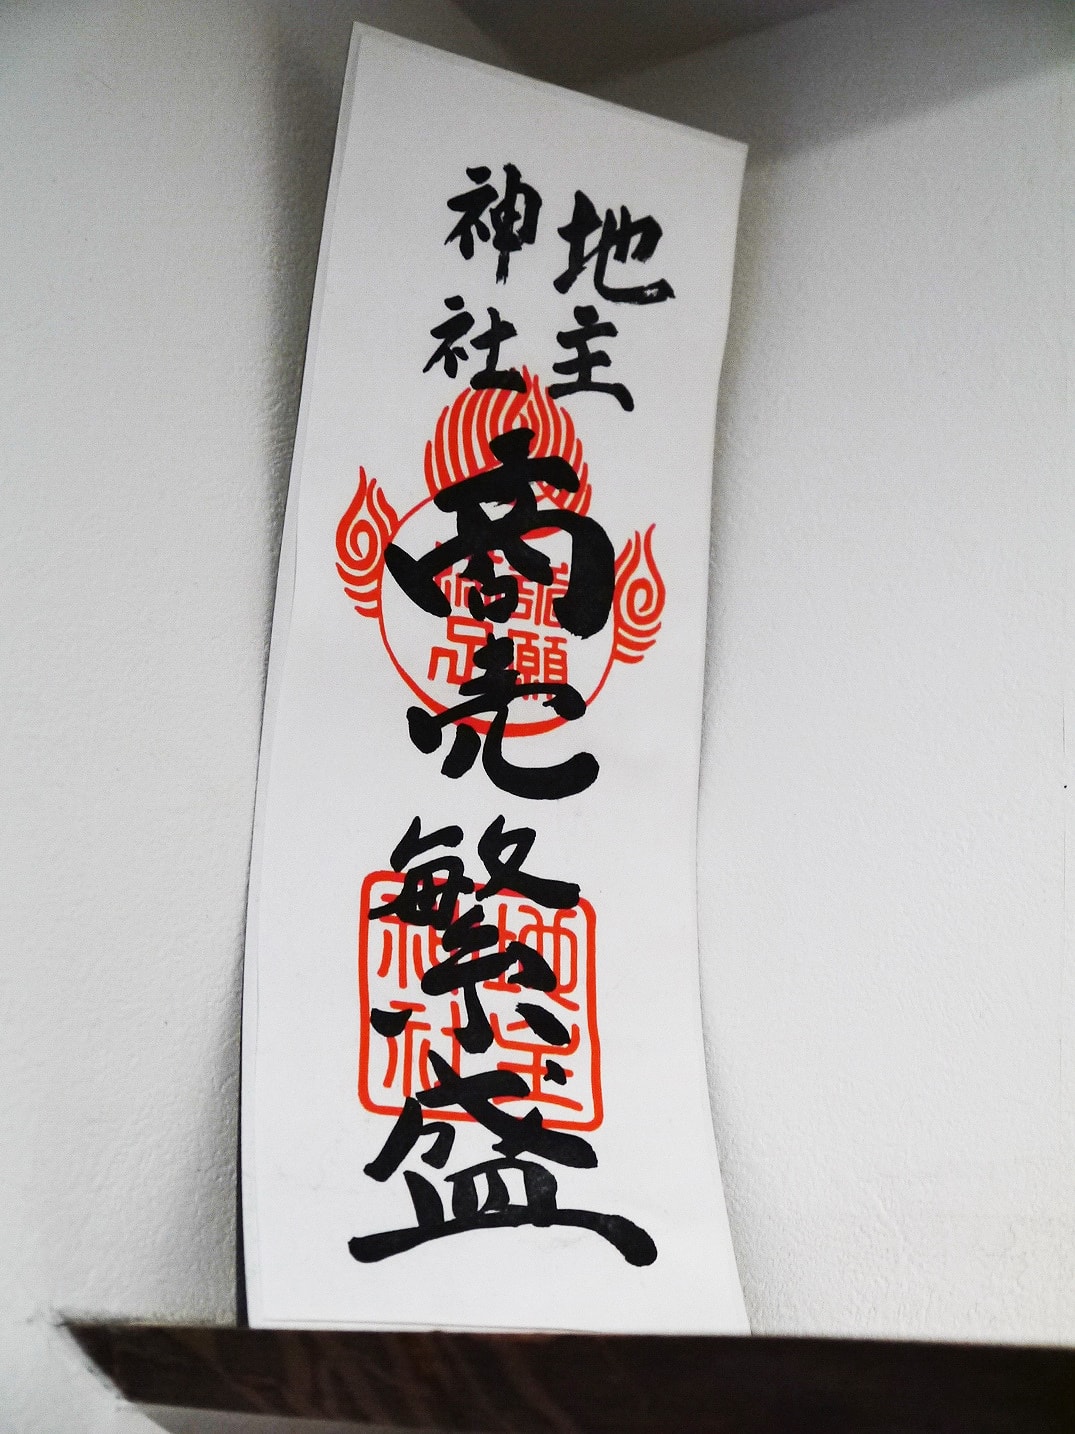 地主
神社
商売繁盛
願
足
地主
神社